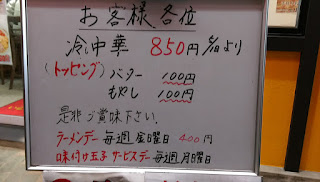 お客様各位
冷し中華 850円 5/10より
(トッピング) バター 100円
もやし 100円
是非ご賞味下さい。
ラーメンデー 毎週金曜日 400円
味付け玉子サービスデー毎週月曜日